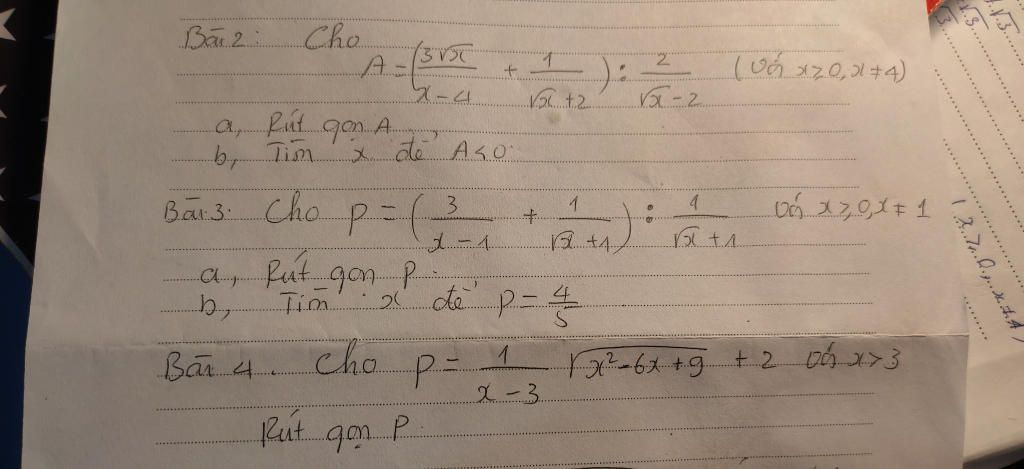 Bài 2: Cho
A = (3√x / x-4 + 1 / √x+2) : 2 / √x-2 (với x ≥ 0, x ≠ 4)
a, Rút gọn A
b, Tìm x để A < 0
Bài 3. Cho p = (3 / x-1 + 1 / √x+1) : 1 / √x+1 với x ≥ 0, x ≠ 1
a, Rút gọn P.
b, Tìm x để p = 4/5
Bài 4. Cho p = 1 / x-3 √x²-6x+9 + 2 với x > 3
Rút gọn P.